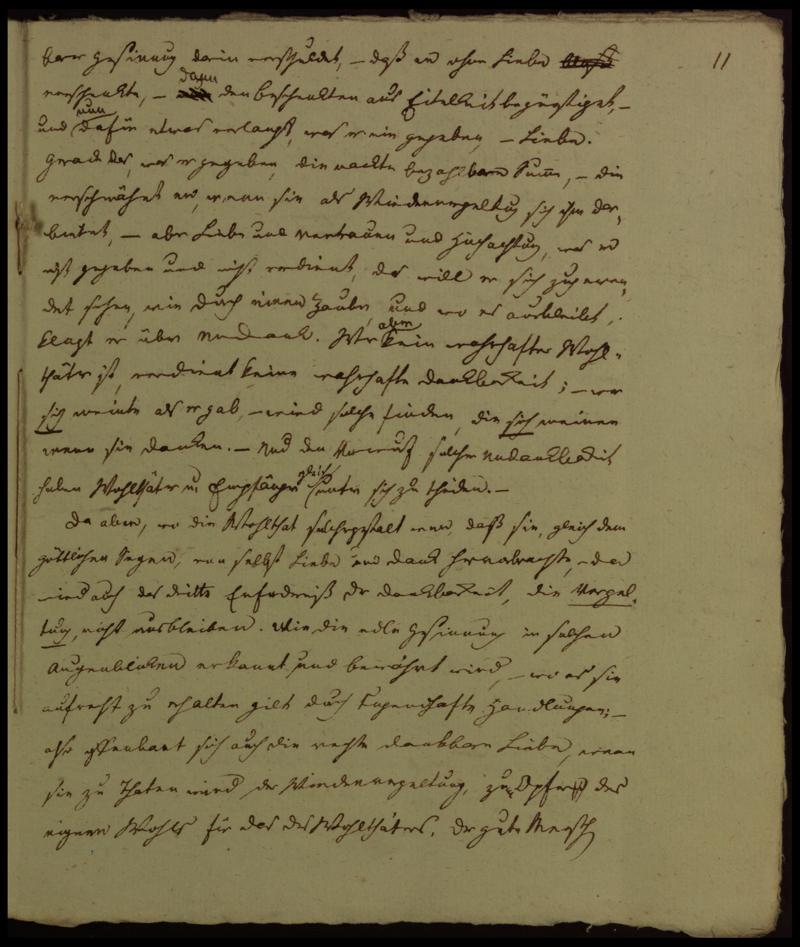 11
barer Gesinnung darin verschuldet, – daß er ohne Liebe
verschenkte, – dann den Beschenkten aus Eitelkeit begünstiget, –
und nun dafür etwas verlangt, was er nie gegeben, – Liebe.
Gerade das, was er gegeben, die nackte bezahlbare Summe, – die
verschmähet er, wenn sie als Wiedervergeltung sich ihm dar-
bietet, – aber Liebe und Vertrauen und Hochachtung, was er
nicht gegeben und nicht verdient, das will er sich zugewen-
det sehen, wie durch einen Zauber, und wo es ausbleibt,
klagt er über Undank. Wer aber kein wahrhafter Wohl-
thäter ist, verdient keine wahrhafte Dankbarkeit; – wer
sich meinte als er gab, – wird solche finden, die sich meinen
wenn sie danken. – Und den Vorwurf solcher Undankbarkeit
haben Wohlthäter u Empfänger gleich unter sich zu theilen. –
Da aber, wo die Wohlthat solchergestalt war, daß sie, gleich dem
göttlichen Segen, von selbst Liebe und Dank hervorbrachte, – da
wird auch das dritte Erforderniß der Dankbarkeit, die Vergel-
tung, nicht ausbleiben. Wie die edle Gesinnung in solchen
Augenblicken erkannt und bewährt wird, – wo es sie
aufrecht zu erhalten gilt durch tugendhafte Handlungen; –
also offenbart sich auch die rechte dankbare Liebe, wenn
sie zu Thaten wird der Wiedervergeltung, zu Opfern des
eignen Wohls für das des Wohlthäters. Der gute Mensch